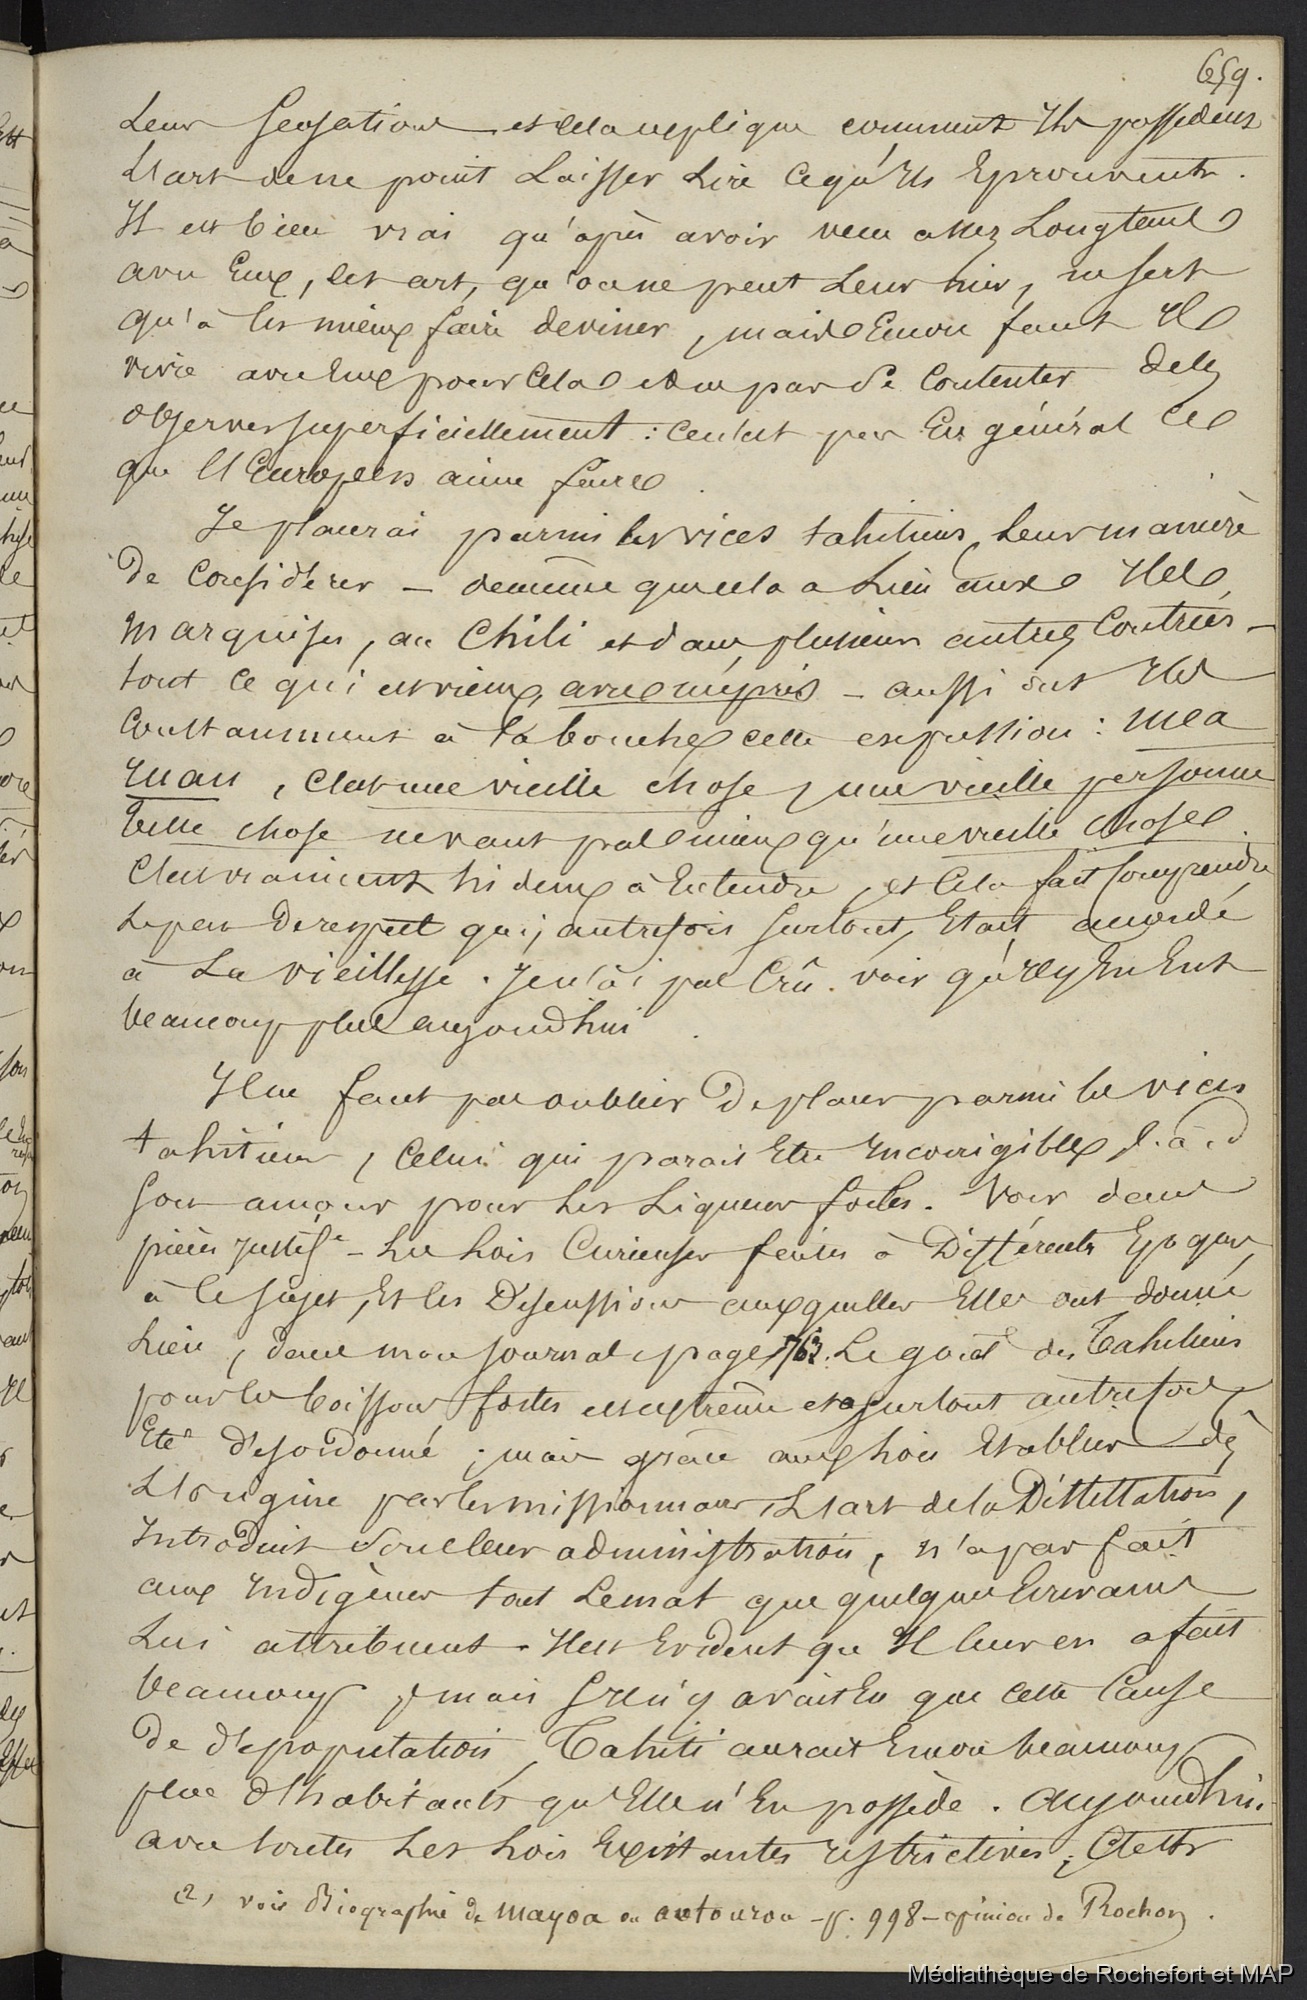 659.
Leur sensations et cela explique comment Ils possèdent
L'art de ne point Laisser Lire ce qu'Ils Eprouvent.
Il est bien vrai qu'après avoir vécu assez Longtems
avec Eux, cet art, qu'on ne peut Leur nier, ne sert
qu'à les mieux faire deviner, mais Encore faut Il
vivre avec Eux pour Cela et ne pas se Contenter de les
observer superficiellement : ce n'est pas En général ce
que l'Européen aime faire.
Je placerai parmi les vices tahitiens, Leur manière
De Considérer – de même que cela a Lieu aux Iles
Marquises, au Chili et dans plusieurs autres Contrées –
tout ce qui est vieux, avec mépris – aussi ont Ils
Constamment à la bouche cette expression : mea
ruau, C'est une vieille chose, une vieille personne
Telle chose ne vaut pas mieux qu'une vieille chose.
C'est vraiment hideux à Entendre, et Cela fait Comprendre
Le peu de respect qui, autrefois surtout, Etait accordé
à La vieillesse. Je n'ai pas Crû voir qu'Il y En Eut
beaucoup plus aujourd'hui.
Il ne faut pas oublier De placer parmi les vices
tahitiens, Celui qui parait Etre Incorrigible, c. à. d
son amour pour Les Liqueurs fortes. Voir dans
pièces justif.s – Les Lois Curieuses faites à Différentes Epoques,
à ce sujet, Et les Discussions auxquelles Elles ont donné
Lieu, dans mon Journal page 763. Le goût des Tahitiens
pour les boissons fortes est extrême et a surtout autrefois
Eté désordonné ; mais grâce aux Lois Etablies dès
L'origine par les missionnaires, L'art de la Distillation,
Introduit sous leur administration, n'a pas fait
aux Indigènes tout Le mal que quelques Ecrivains
Lui attribuent. Il est Evident qu'Il leur en a fait
beaucoup, mais s'Il n'y avait Eu que cette Cause
De dépopulation, Tahiti aurait Encore beaucoup
plus d'habitants qu'Elle n'En possède. Aujourd'hui
avec toutes Les Lois Existantes restrictives, C'est
(2) voir Biographie de Mayoa ou aotourou – p. 998 – opinion de Rochon.
Médiathèque de Rochefort et MAP